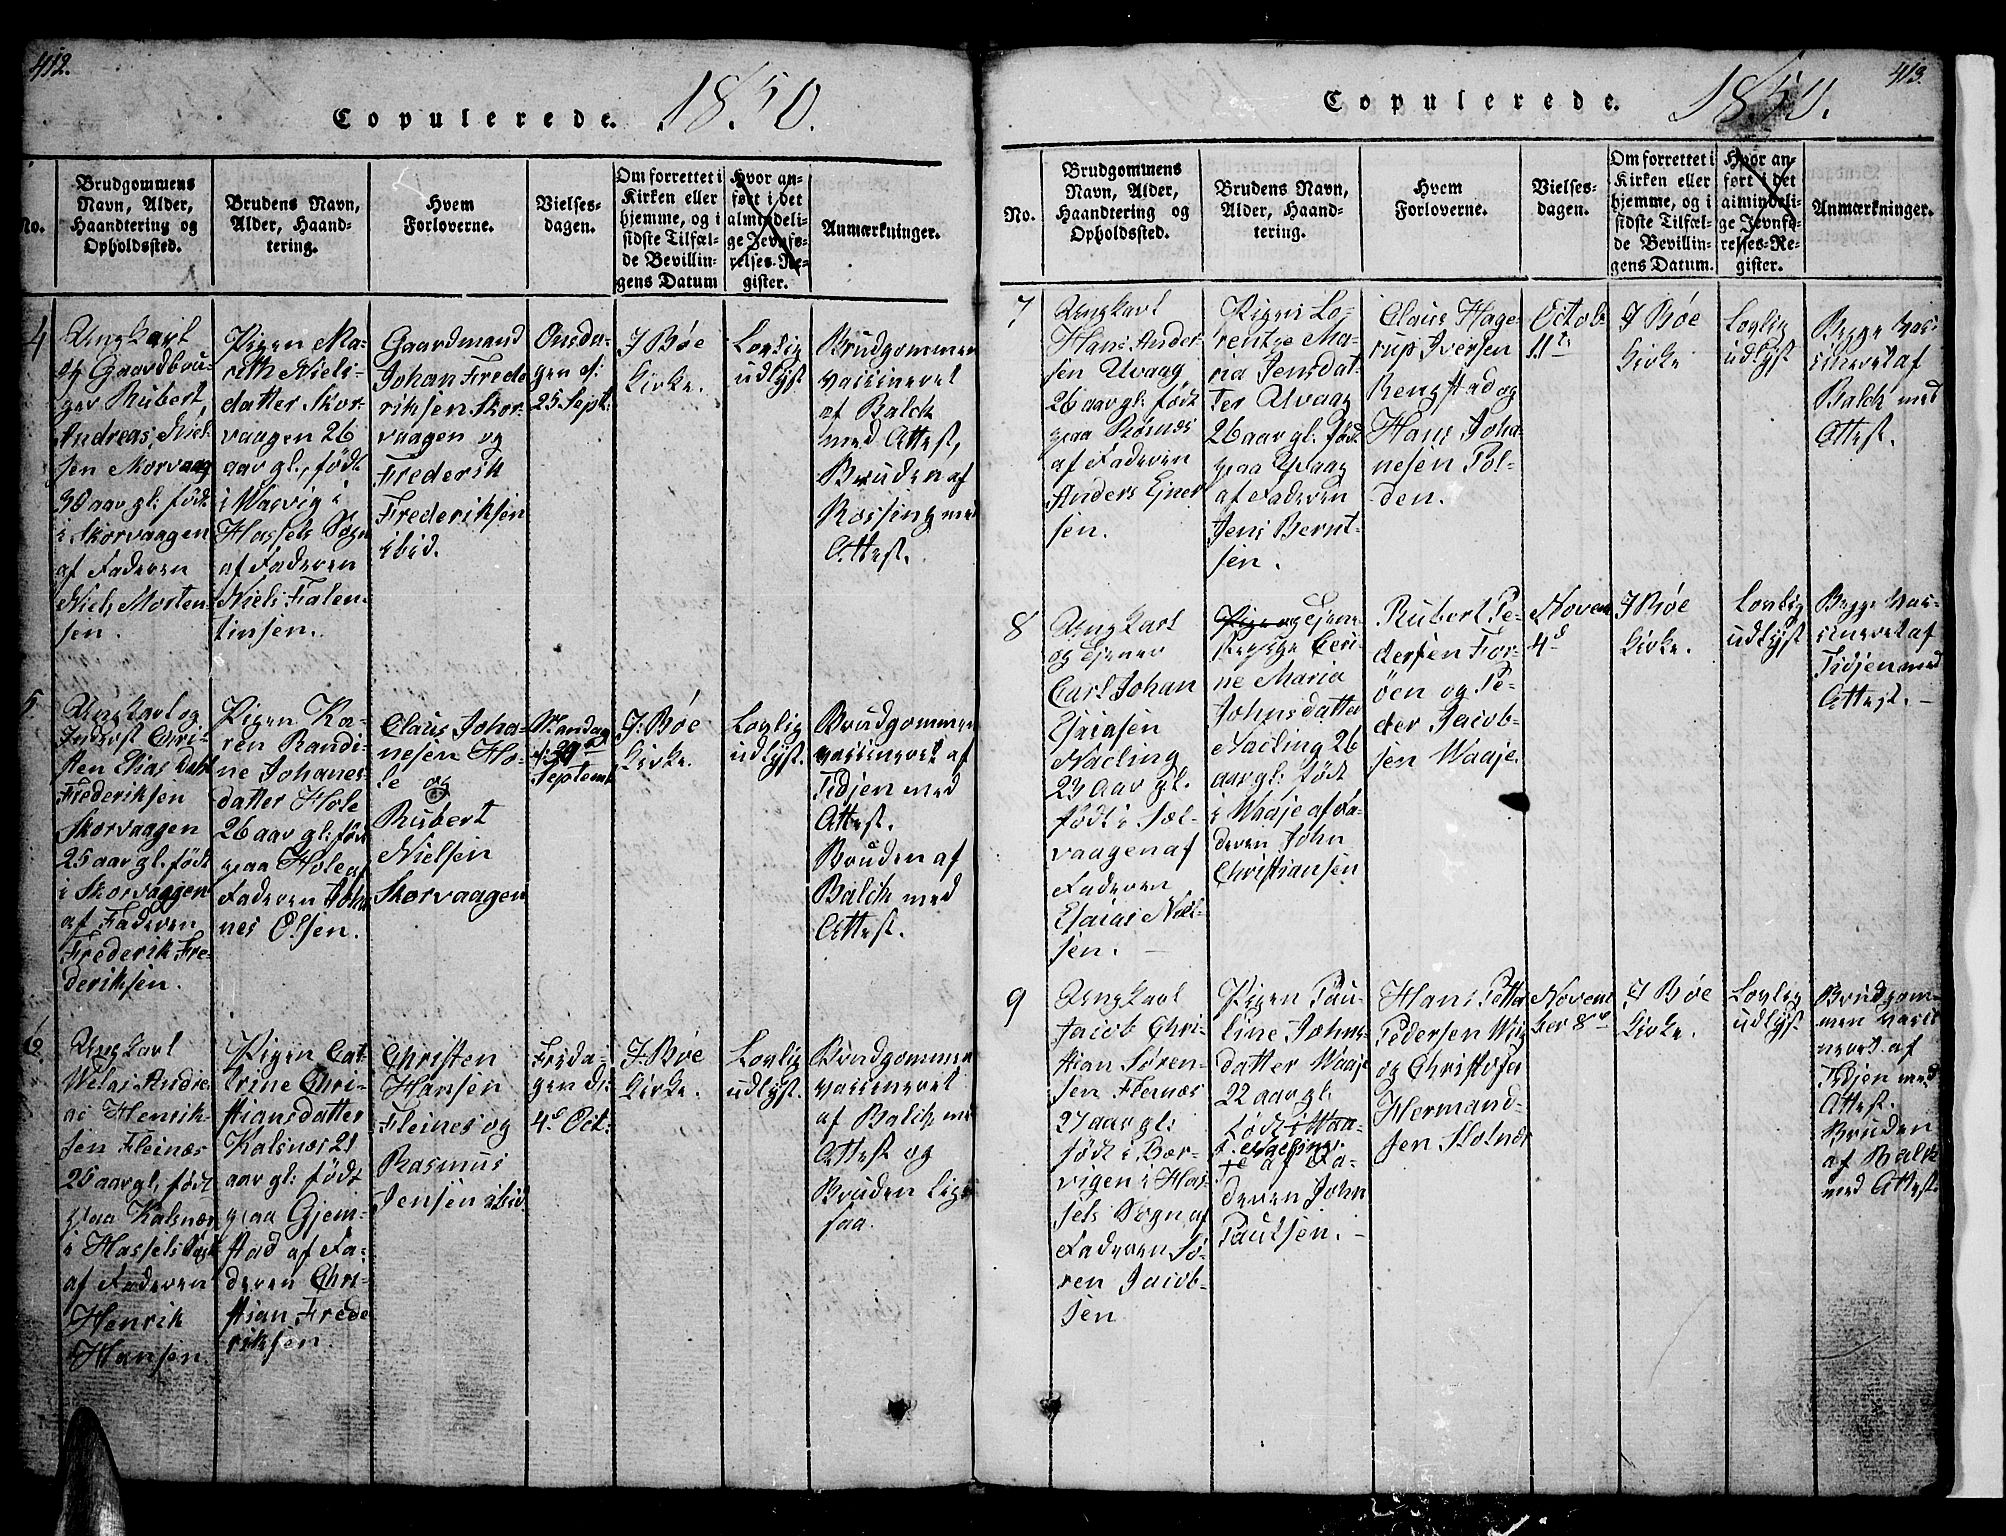 412.
Copulerede. 1850.
No.
Brudgommens
Navn, Alder,
Haandtering og
Opholdssted.
Brudens Navn,
Alder, Haand-
tering.
Hvem
Forloverne.
Vielses-
dagen.
Om forrettet i
Kirken eller
hjemme, og i
sidste Tilfæl-
de Bevillin-
gens Datum
Hvor an-
ført i det
almindeli-
ge Jevnfø-
relses-Re-
gister.
Anmærkninger.
4
Ungkarl
og Gaardbru-
ger Rubert
Andreas Niel-
sen Skorvaag
30 aar gl: født
i Skorvaagen
af Faderen
Niels Morten-
sen.
Pigen Ma-
reth Niels-
datter Skor-
vaagen 26
aar gl., født
i Wasvig i
Hassels Sogn
af Faderen
Niels Falen-
tinsen.
Gaardmand
Johan Frede
riksen Skor-
vaagen og
Frederik
Frederiksen
ibid.
Onsda-
gen d:
25 Sept:
I Bøe
Kirke.
Lovlig
udlyst
Brudgommen
vaccineret
af Balck
med Attest,
Bruden af
Rossing med
Attest.
5
Ungkarl og
Inderst Chri-
sten Elias Dahl
Frederiksen
Skorvaagen
25 aar gl: født
i Skorvaagen
af Faderen
Frederik Fre-
deriksen.
Pigen Ka-
ren Randi-
ne Johanes-
datter Hole
26 aar gl: født
paa Hole af
Faderen Joha
nes Olsen.
Claus Joha-
nesen Ho-
le og
Rubert
Nielsen
Skorvaagen
Mandag
d: 30te
Septemb
I Bøe
Kirke.
Lovlig
udlyst.
Brudgommen
vaccineret af
Tidjen med
Attest.
Bruden af
Balck med
Attest.
6.
Ungkarl
Andre
as Henrik-
sen Fleinæs
25 aar gl. født
paa Kalsnæs
i Hassels Sogn
af Faderen
Henrik
Hansen.
Pigen Cat-
trine Chri-
stiansdatter
Kalsnæs 21
aar gl: født
paa Gjem-
stad af Fa-
deren Chri-
stian Frede
riksen.
Christen
Hansen
Fleines og
Rasmus
Jensen ibid
Freda-
gen d:
4de Oct:
I Bøe
Kirke.
Lovlig
udlyst.
Brudgommen
vaccineret
af Balch med
Attest og
Bruden lige
saa.
413.
Copulerede. 1850.
No.
Brudgommens
Navn, Alder,
Haandtering og
Opholdssted.
Brudens Navn,
Alder, Haand-
tering.
Hvem
Forloverne.
Vielses-
dagen.
Om forrettet i
Kirken eller
hjemme, og i
sidste Tilfæl-
de Bevillin-
gens Datum.
Hvor an-
ført i det
almindeli-
ge Jevnfø-
relses-Re-
gister.
Anmærkninger.
7
Ungkarl
Hans Ander
sen Uvaag
26 aar gl. født
paa Rømnes
af Faderen
Anders Ejner
sen.
Pigen Lo-
rentze Ma-
ria Jensdat-
ter Uvaag
26 aar gl: født
paa Uvaag
af Faderen
Jens Bernt-
sen.
Claus Hage-
rup Iversen
Rengstad og
Hans Joha-
nesen Pol-
den.
Octob
11te
I Bøe
Kirke
Lovlig
udlyst
Begge vac-
cineret af
Balck med
Attest.
8
Ungkarl
og Ejener
Carl Johan
Esaiasen
Nacling
23 aar gl.
født i Sæl-
vaagen af
Faderen
Esaias Niel-
sen.
Pige og Ejene-
Pige Ceri-
ne Maria
Johnsdatter
Nacling 26
aar gl: født
i Waaje af Fa-
deren John
Christiansen
Rubert Pe-
dersen For-
øen og Pe-
der Jacob-
sen Waaje.
Novem
4de
I Bøe
Kirke.
Lovlig
udlyst
Begge Vac-
cineret af
Tidjen med
Attest.
9
Ungkarl
Jacob Chri-
stian Søren-
sen Fleinæs
27 aar gl:
født i Bær-
vigen i Has-
sels Sogn af
Faderen Sø-
ren Jacob-
sen
Pigen Pau-
line Johns-
datter Waaje
22 aar gl:
født i Waa-
te af Fa-
deren John
Paulsen.
Hans Petter
Pedersen Wig
og Christofer
Hermand-
sen Skotnæs
Novem
ber 8de
I Bøe
Kirke.
Lovlig
udlyst
Brudgom-
men vacci
neret af
Tidjen med
Attest.
Bruden
af Balck
med Attest.